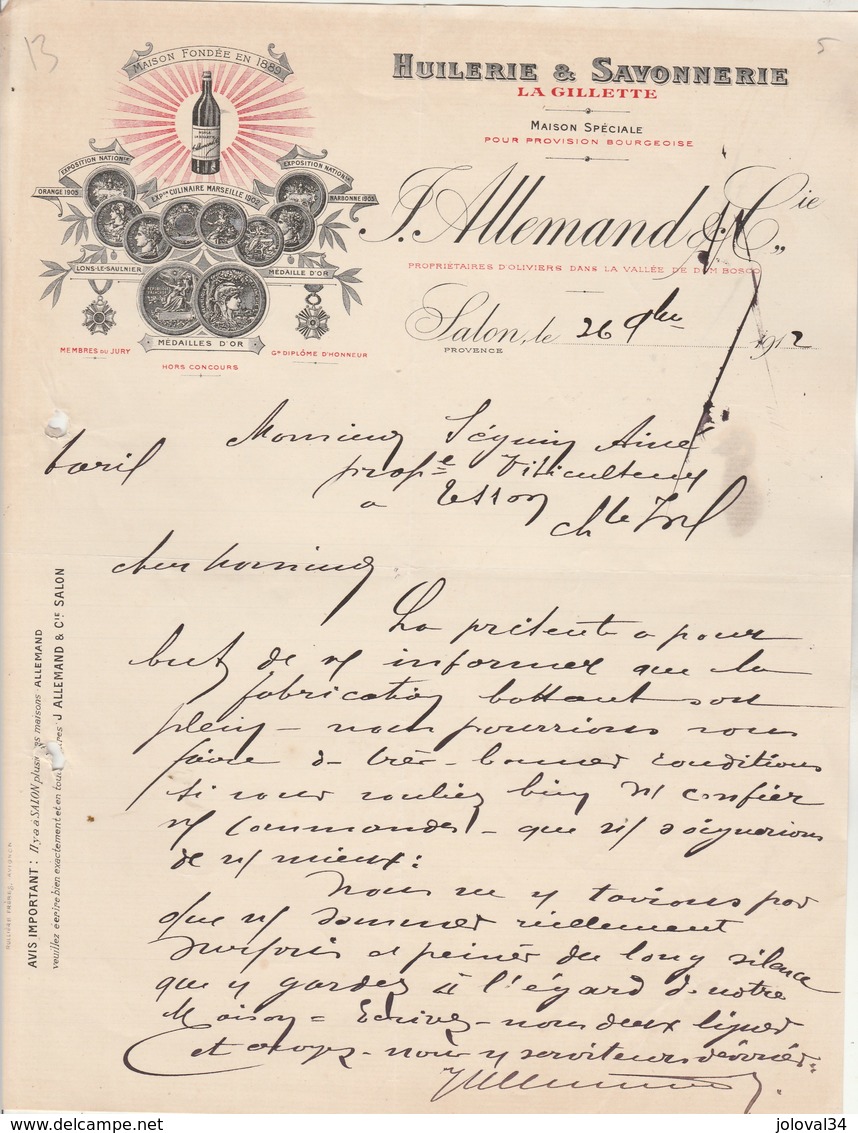 13
5
MAISON FONDÉE EN 1889
HUILERIE & SAVONNERIE
LA GILLETTE
MAISON SPÉCIALE
POUR PROVISION BOURGEOISE
EXPOSITION NATIONLE
EXPOSITION NATIONLE
ORANGE 1905
EXPON CULINAIRE MARSEILLE 1902
NARBONNE 1905
J. Allemand & Cie
LONS-LE-SAULNIER
MÉDAILLE D'OR
PROPRIÉTAIRES D'OLIVIERS DANS LA VALLÉE DE DOM BOSCO
MÉDAILLES D'OR
MEMBRES DU JURY
HORS CONCOURS
GD DIPLÔME D'HONNEUR
Salon, le 26 9bre 1912
PROVENCE
Monsieur Séguin Ainé
tarif
prope Viticulteur
a Tesson
chte Infre
cher monsieur
La présente a pour
but de vs informer que la
fabrication battant son
plein - nous pourrions vous
faire de très bonnes conditions
si vous vouliez bien ns confier
vs commandes - que ns soignerions
de ns mieux :
Nous ne vs savions pas
que ns sommes réellement
surpris et peinés du long silence
que vs gardez à l'égard de notre
Maison = Ecrivez-nous deux lignes
et croyez-nous vs serviteurs dévoués.
J Allemand
AVIS IMPORTANT : Il y a à SALON plusieurs maisons ALLEMAND
veuillez écrire bien exactement et en toutes lettres J ALLEMAND & CIE SALON
RULLIÈRE FRÈRES, AVIGNON
www.delcampe.net
joloval34